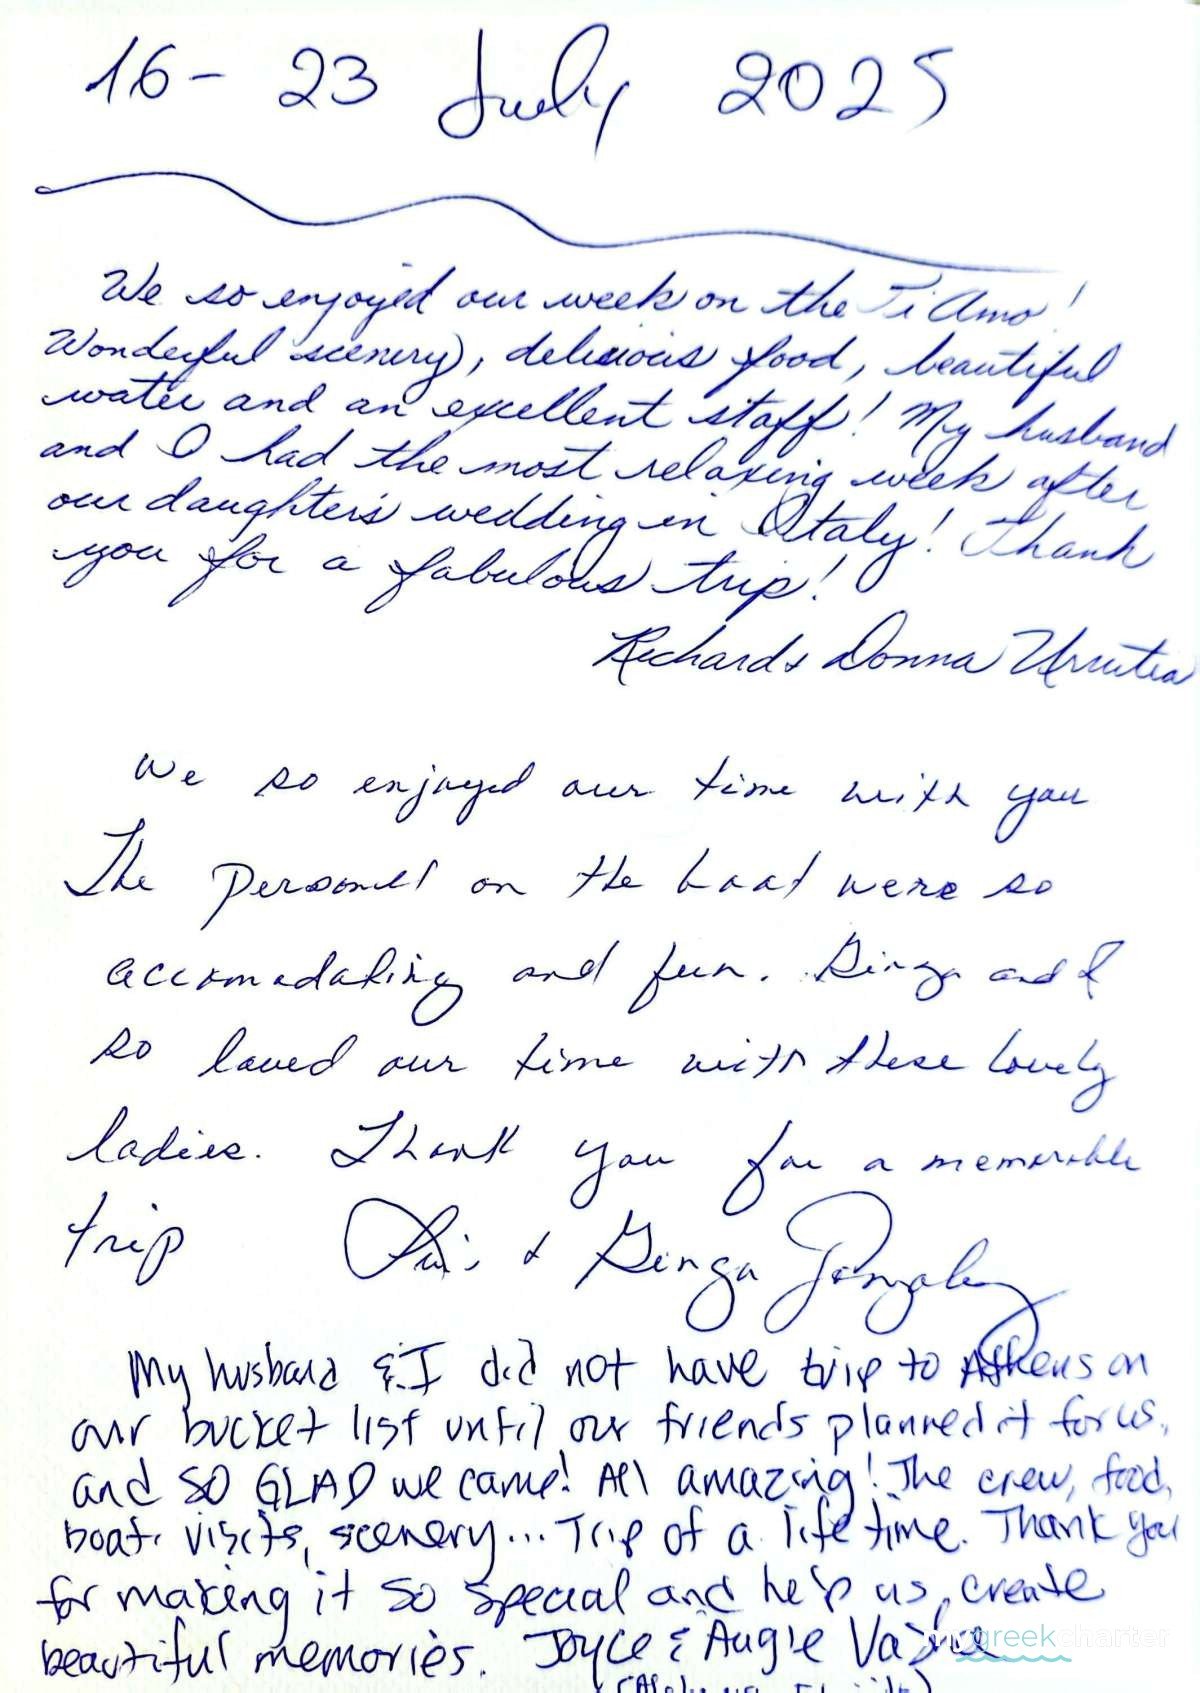 16 - 23 July 2025
We so enjoyed our week on the Ti Amo!
Wonderful scenery, delicious food, beautiful
water and an excellent staff! My husband
and I had the most relaxing week after
our daughter's wedding in Italy! Thank
you for a fabulous trip!
Richard & Donna Urrutia
We so enjoyed our time with you
The personel on the boat were so
accomadating and fun. Ginga and I
so loved our time with these lovely
ladies. Thank you for a memorable
trip & Ginga Gonzalez
My husband & I did not have trip to Athens on
our bucket list until our friends planned it for us,
and SO GLAD we came! All amazing! The crew, food,
boat, visits, scenery... Trip of a life time. Thank you
for making it so special and help us create
beautiful memories. Joyce & Augie
mygreekcharter